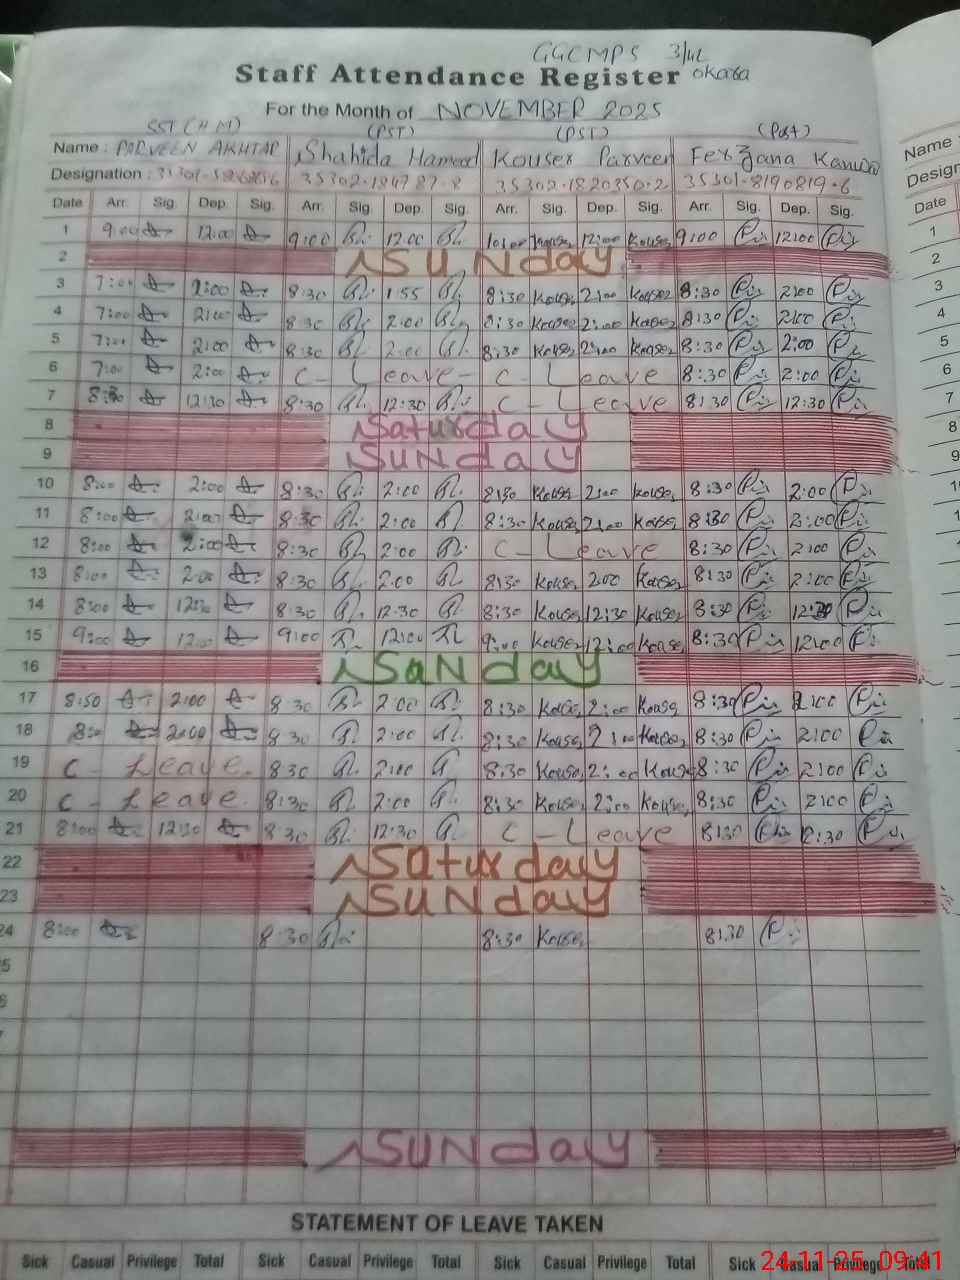 GGCMPS 3/4L
Staff Attendance Register Okara
For the Month of NOVEMBER 2025
SST (H M) (PST) (PST) (Pst)
Name : PARVEEN AKHTAR Shahida Hameed Kouser Parveen Ferzana Kanwal Name :
Designation : 35302-18478 7-8 35302-1820350-2 35301-8190819-6
Date Arr. Sig. Dep. Sig. Arr. Sig. Dep. Sig. Arr. Sig. Dep. Sig. Arr. Sig. Dep. Sig. Date
1 9:00 12:00 9:00 12:00 10:00 Kouser 12:00 Kouser 9:00 12:00 1
2 SUNday 2
3 7:00 2:00 8:30 1:55 8:30 Kouser 2:00 Kouser 8:30 2:00 3
4 7:00 2:00 8:30 2:00 8:30 Kouser 2:00 Kouser 8:30 2:00 4
5 7:00 2:00 8:30 2:00 8:30 Kouser 2:00 Kouser 8:30 2:00 5
6 7:00 2:00 C - Leave - C - Leave 8:30 2:00 6
7 8:30 12:30 8:30 12:30 C - Leave 8:30 12:30 7
8 Saturday 8
9 SUNday 9
10 8:00 2:00 8:30 2:00 8:30 Kouser 2:00 Kouser 8:30 2:00
11 8:00 2:00 8:30 2:00 8:30 Kouser 2:00 Kouser 8:30 2:00
12 8:00 2:00 8:30 2:00 C - Leave 8:30 2:00
13 8:00 2:00 8:30 2:00 8:30 Kouser 2:00 Kouser 8:30 2:00
14 8:00 12:30 8:30 12:30 8:30 Kouser 12:30 Kouser 8:30 12:30
15 9:00 12:00 9:00 12:00 9:00 Kouser 12:00 Kouser 8:30 12:00
16 SUNday
17 8:50 2:00 8:30 2:00 8:30 Kouser 2:00 Kouser 8:30 2:00
18 8:00 2:00 8:30 2:00 8:30 Kouser 2:00 Kouser 8:30 2:00
19 C - Leave. 8:30 2:00 8:30 Kouser 2:00 Kouser 8:30 2:00
20 C - Leave. 8:30 2:00 8:30 Kouser 2:00 Kouser 8:30 2:00
21 8:00 12:30 8:30 12:30 C - Leave 8:30 12:30
22 Saturday
23 SUNday
24 8:00 8:30 8:30 Kouser 8:30
SUNday
STATEMENT OF LEAVE TAKEN
Sick Casual Privilege Total Sick Casual Privilege Total Sick Casual Privilege Total Sick Casual Privilege Total
24-11-25 09:41